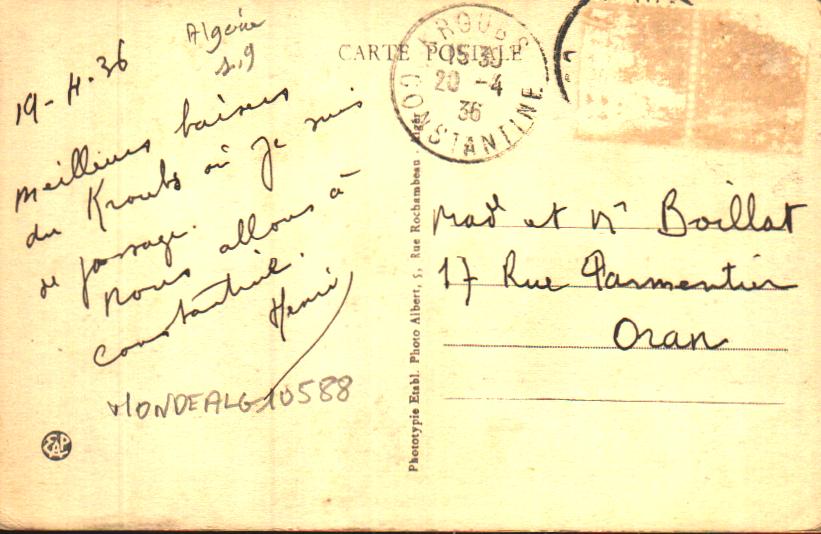 Algérie
1,9
19-4-36
meilleurs baisers
du Kroubs où je suis
de passage.
nous allons à
constantine.
Henri
MONDEALG10588
EAP
CARTE POSTALE
KROUBS
15 30
20 -4
36
CONSTANTINE
Phototypie Etabl. Photo Albert, 5, Rue Rochambeau - Alger
Mad et Mr Boillat
17 Rue Parmentier
Oran